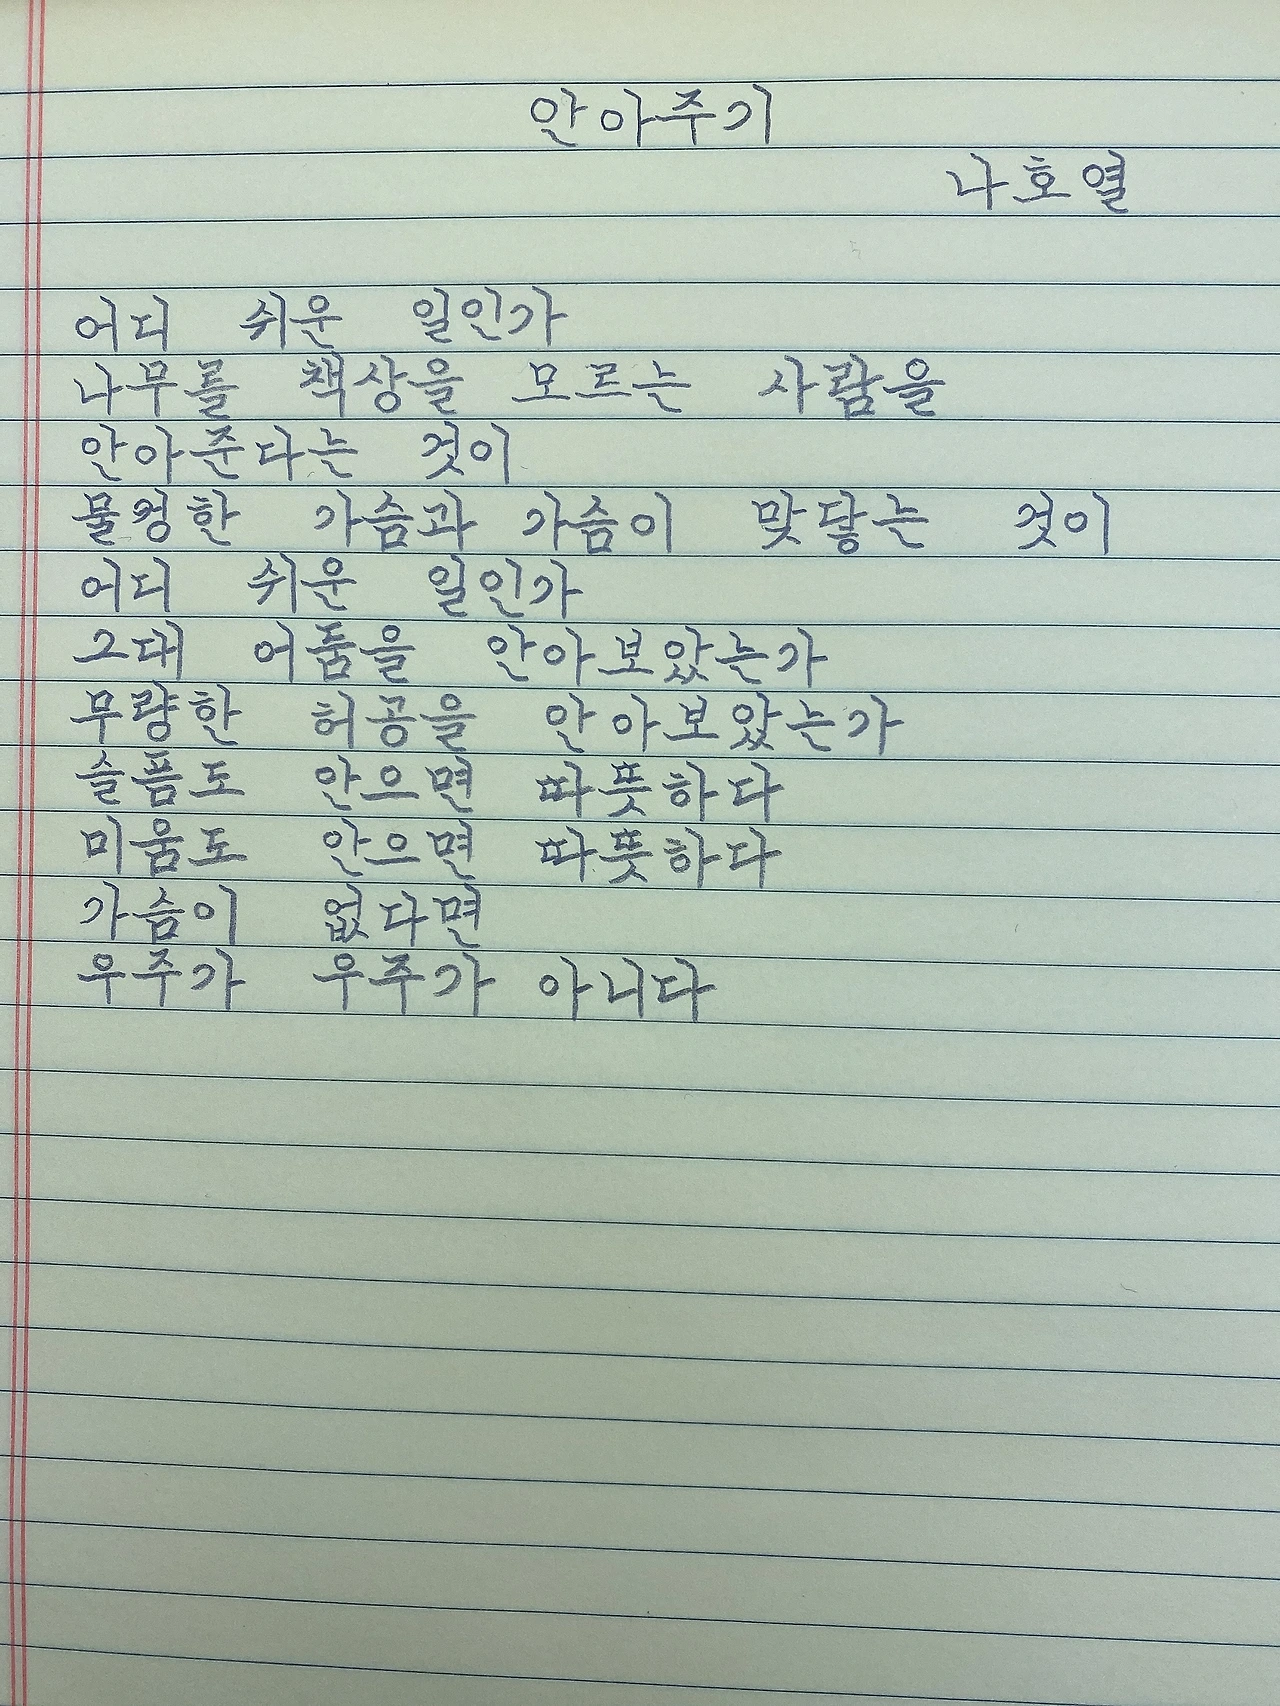 안아주기
나호열
어디 쉬운 일인가
나무를 책상을 모르는 사람을
안아준다는 것이
물컹한 가슴과 가슴이 맞닿는 것이
어디 쉬운 일인가
그대 어둠을 안아보았는가
무량한 허공을 안아보았는가
슬픔도 안으면 따뜻하다
미움도 안으면 따뜻하다
가슴이 없다면
우주가 우주가 아니다